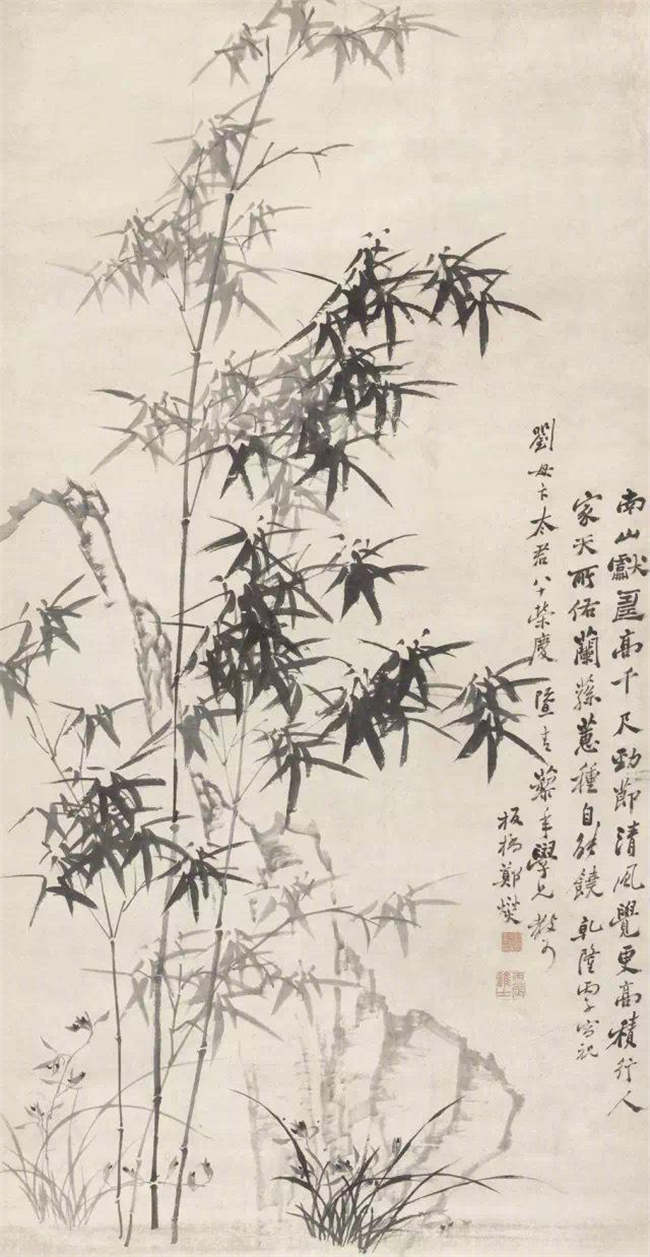 南山獻壽高千尺勁節清風覺更高積行人
家天所佑蘭蓀蕙種自能饒 乾隆丙子寫祝
劉母卞太君八十榮慶
藜年學兄教可
板橋鄭燮